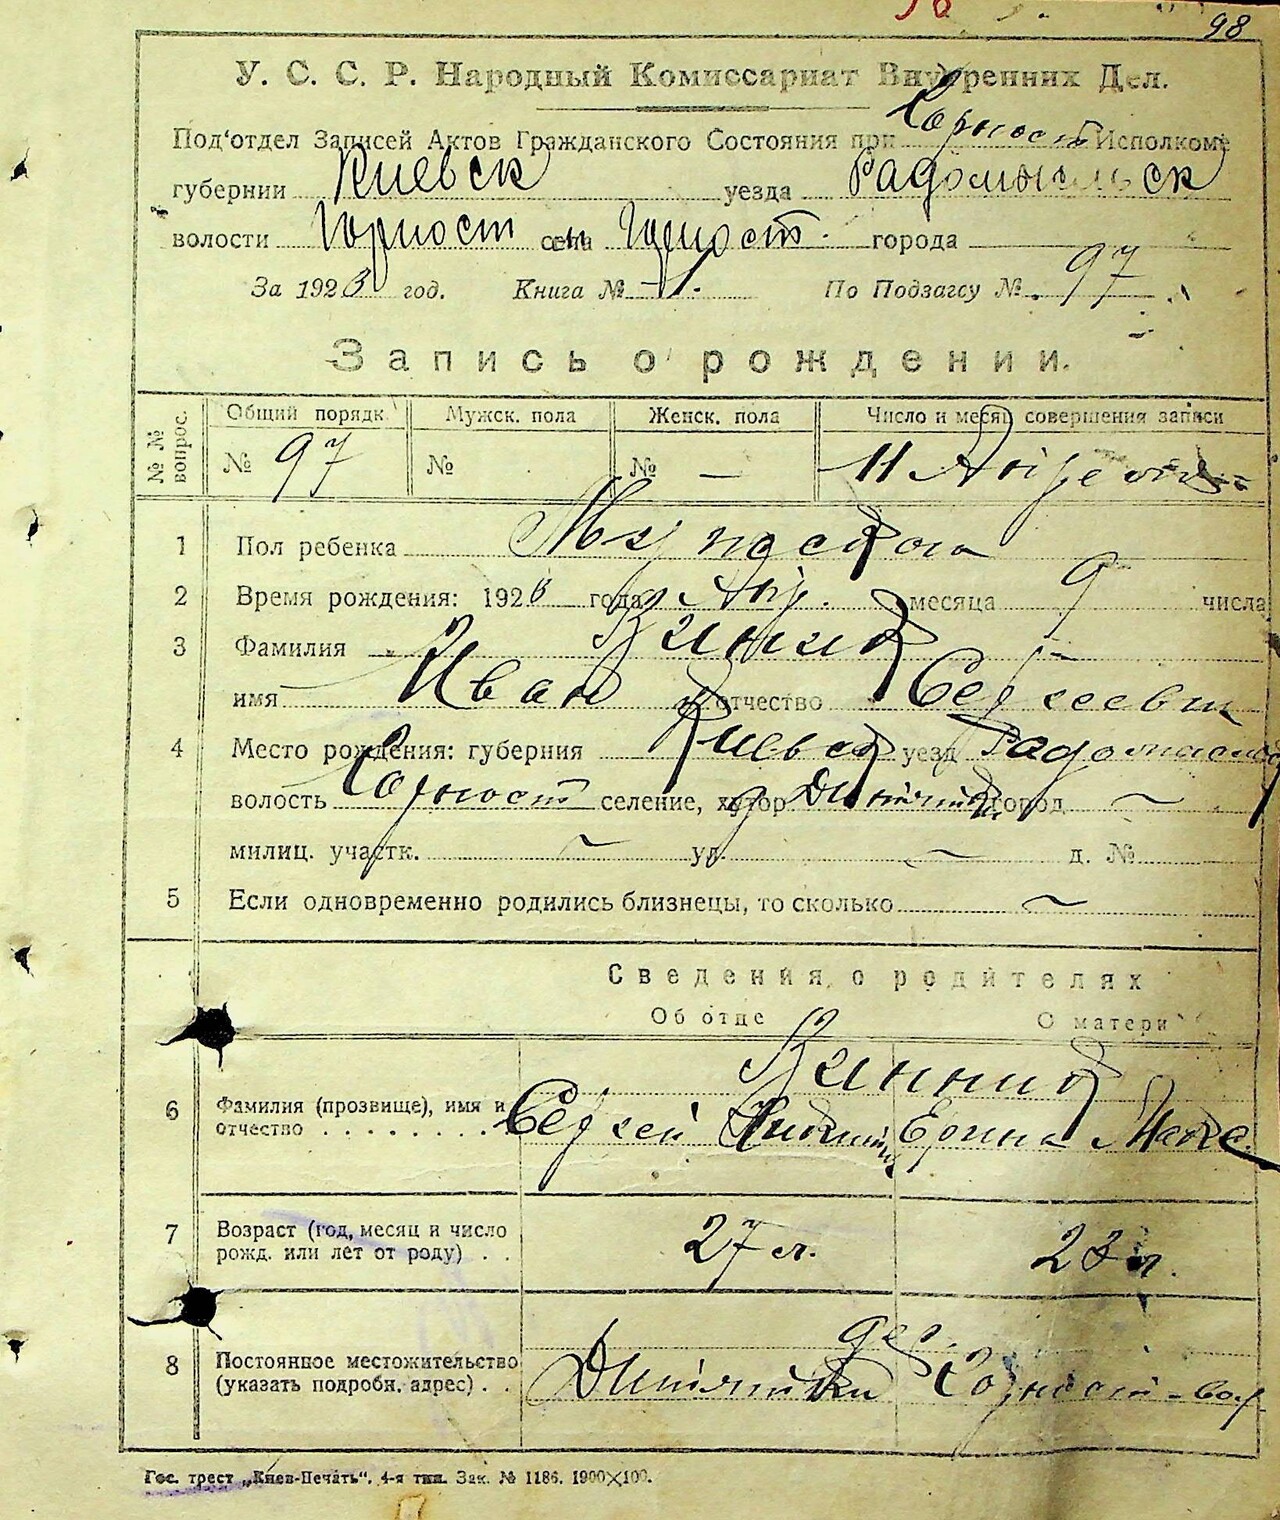 98
У. С. С. Р. Народный Комиссариат Внутренних Дел.
Под'отдел Записей Актов Гражданского Состояния при Горност Исполкоме
губернии Киевск уезда Радомысльск
волости Горност села Горност. города
За 1923 год. Книга № 1. По Подзагсу № 97
Запись о рождении.
№ № вопрос. Общий порядк. Мужск. пола Женск. пола Число и месяц совершения записи
№ 97 № № — 11
1 Пол ребенка Мужеского
2 Время рождения: 1923 года месяца 9 числа
3 Фамилия Винник
имя Иван отчество Сергеевич
4 Место рождения: губерния Киевск уезд
волость Горност селение, хутор д Дитятки город ~
милиц. участк. ~ ул. ~ д. №
5 Если одновременно родились близнецы, то сколько ~
Сведения о родителях
Об отце О матери
Винник
6 Фамилия (прозвище), имя и отчество Сергей Ерина
7 Возраст (год, месяц и число рожд. или лет от роду) 27 л. 23 л.
8 Постоянное местожительство (указать подробн. адрес) дер. Дитятки Горност-вол.
Гос. трест „Киев-Печать". 4-я тип. Зак. № 1186. 1900×100.